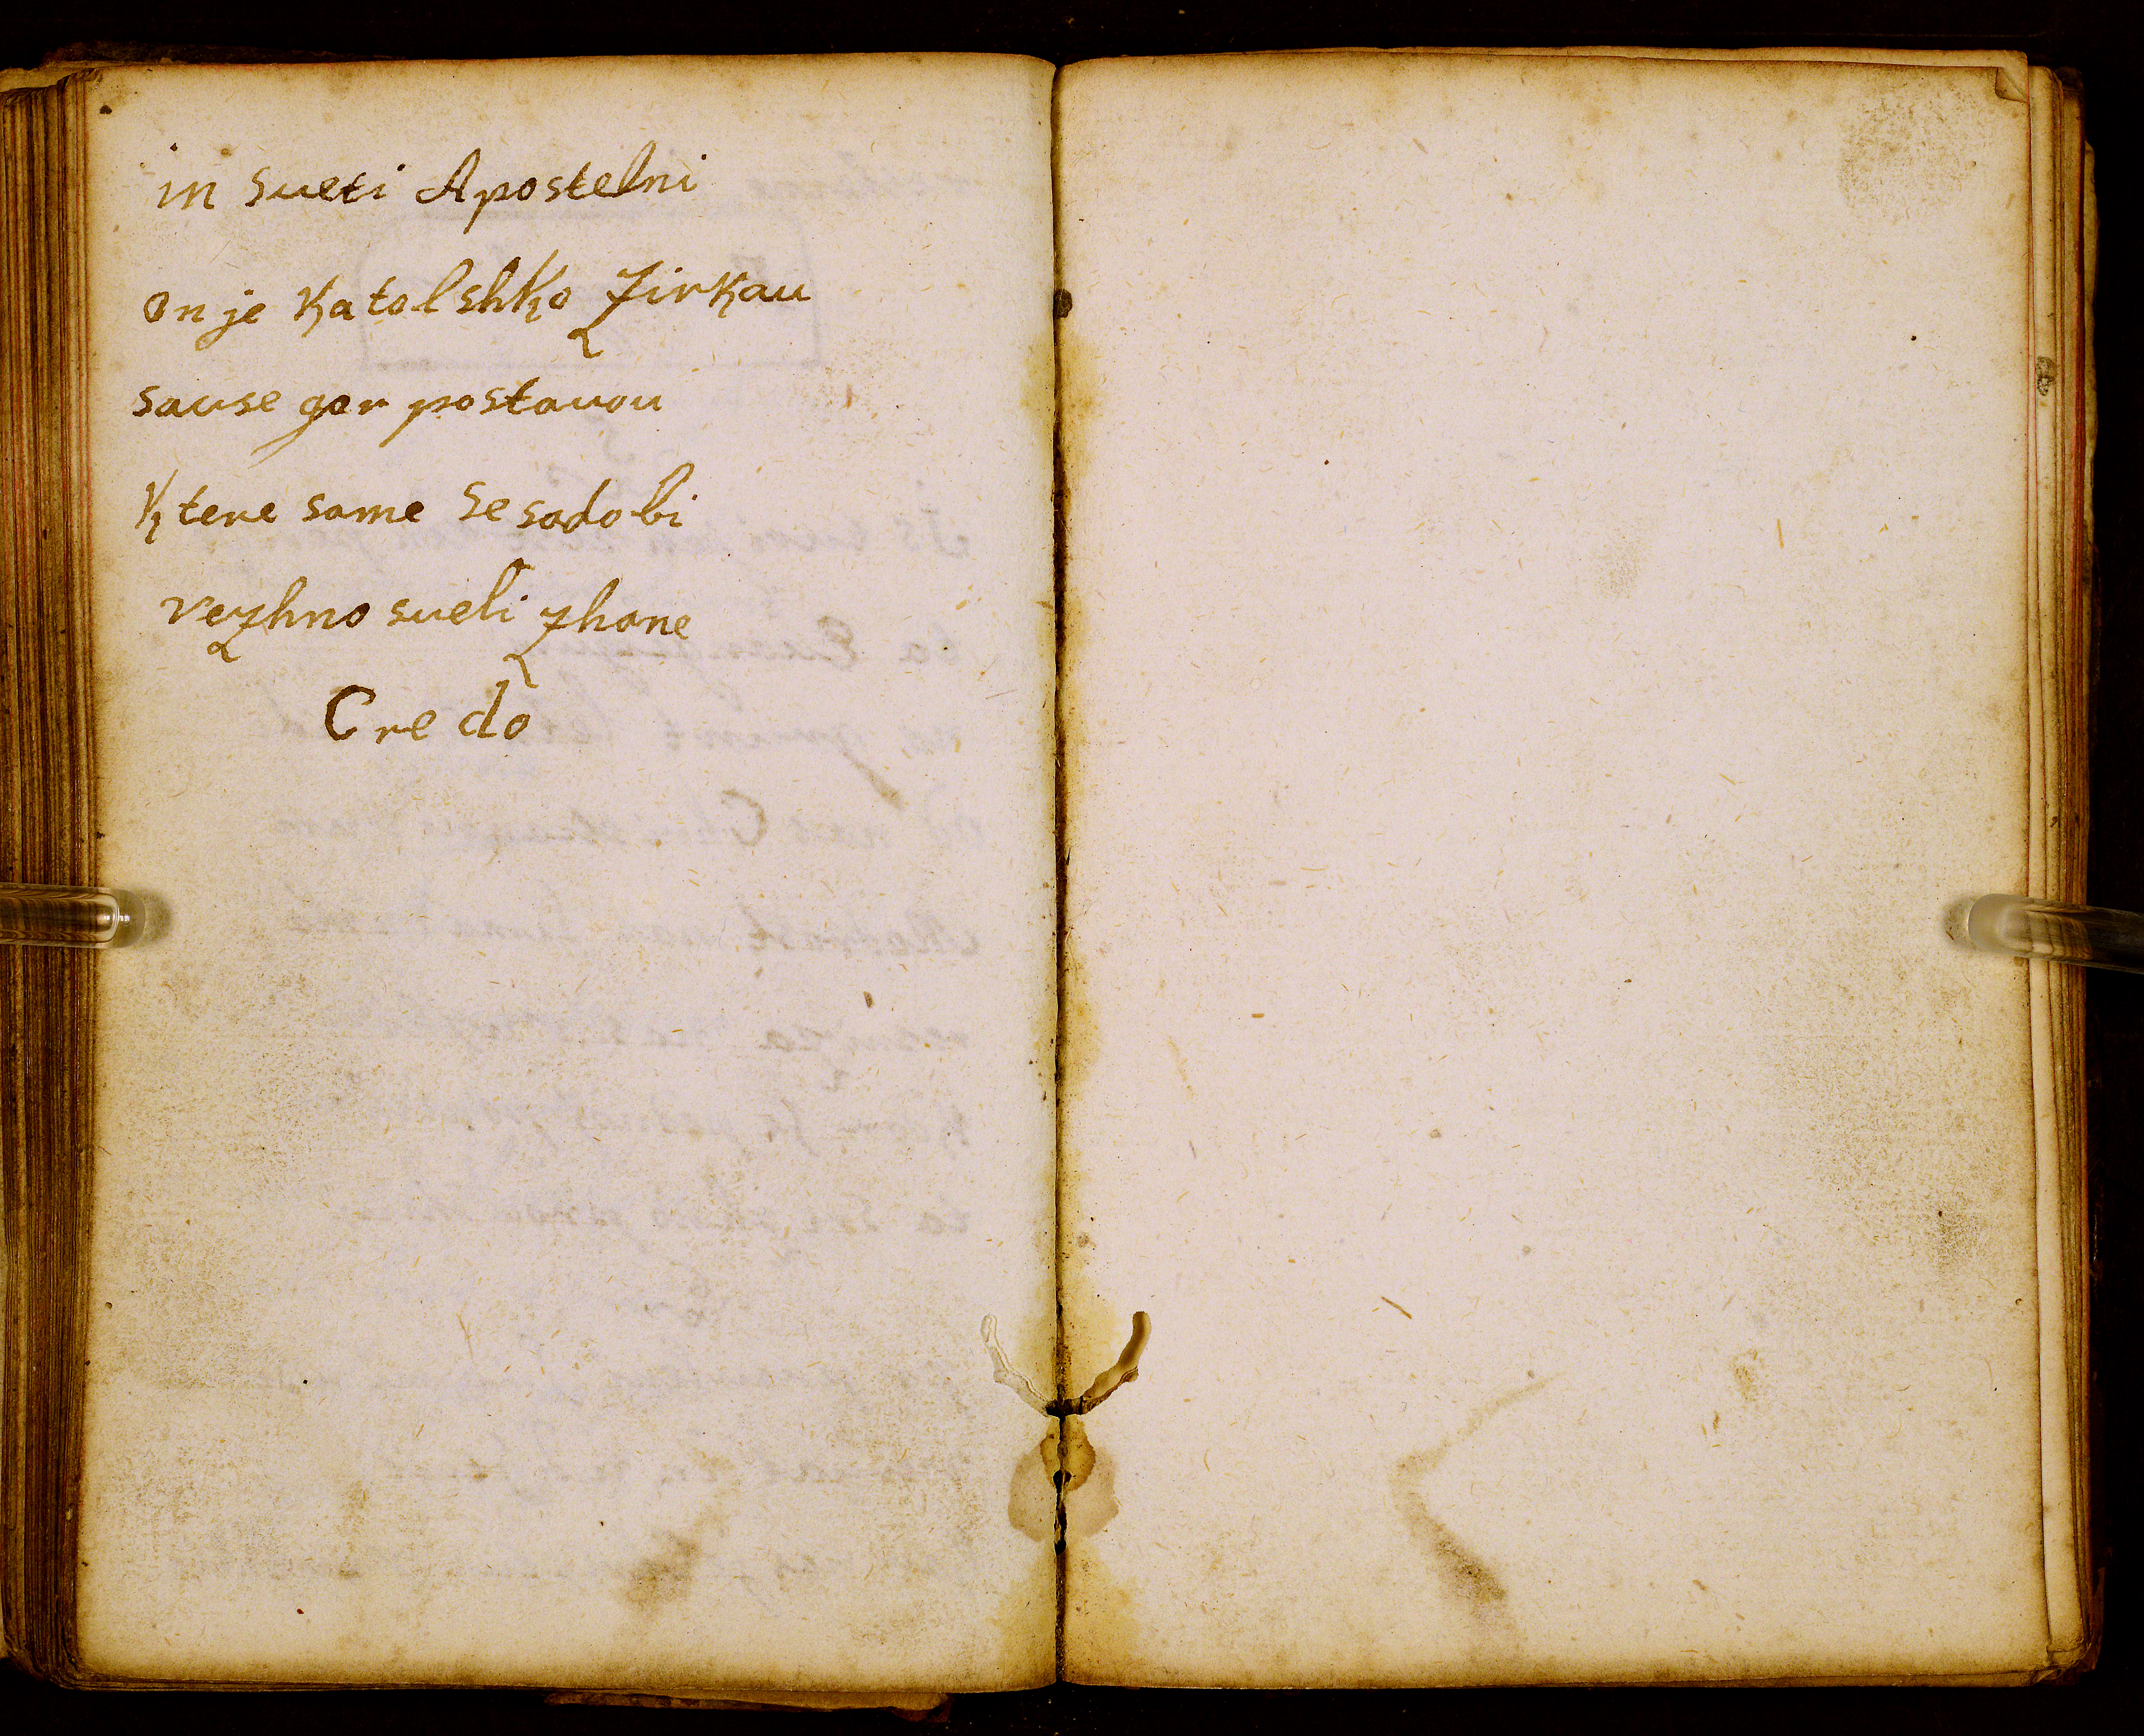 in sueti Apostelni
on je Katolshko Zirkau
sause gor postavou
Ktere same se sadobi
vezhno sueli zhane
Credo